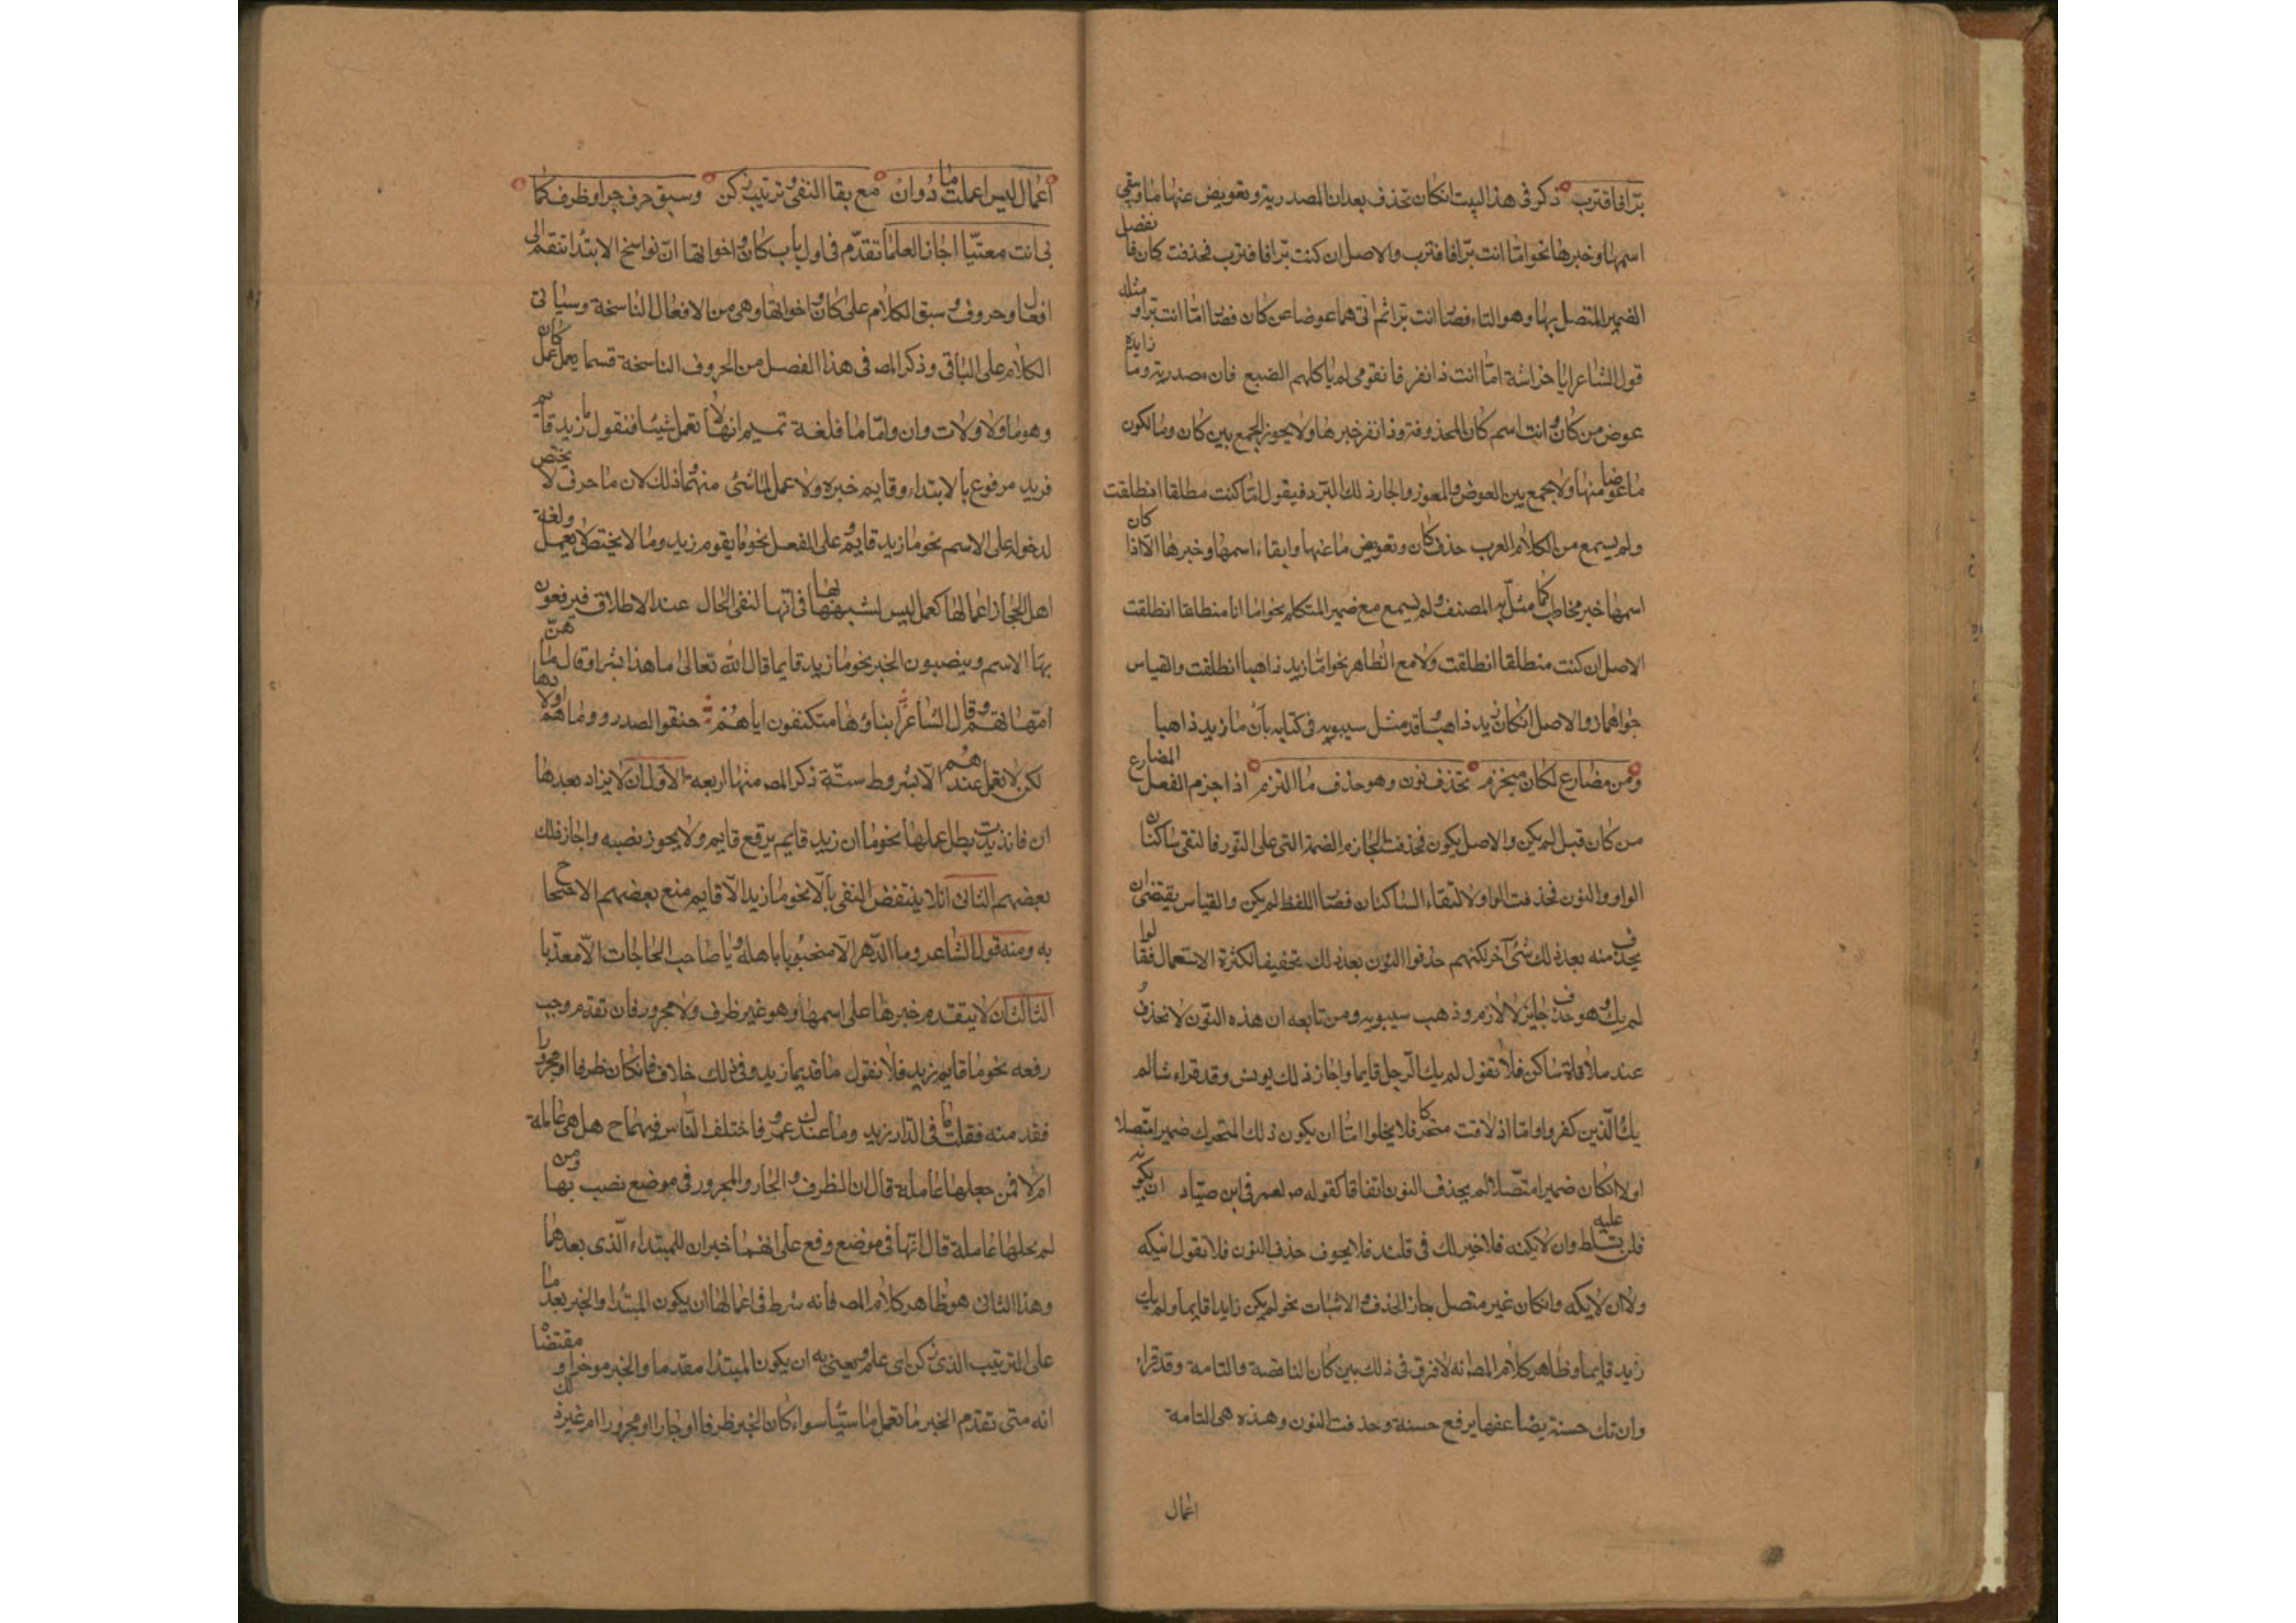 برّا فاقترب ذكر فى هذا البيت انكان تحذف بعد ان المصدرية وتعويض عنها ما وبقى
اسمها وخبرها نحو امّا انت برّا فاقترب والاصل ان كنت برّا فاقترب فحذفت كان فانفصل
الضمير المتصل بها وهو التاء فصار ان انت برّا ثم اتى بما عوضا عن كان فصار امّا انت برّا ومثله
قول الشاعر ايا خراشة امّا انت ذا نفر فان قومى لم ياكلهم الضبع فان مصدرية وما زايدة
عوض من كان وانت اسم كان المحذوفة وذا نفر خبرها ولا يجوز الجمع بين كان وما لكون
ما عوضا منها ولا يجمع بين العوض والمعوز واجاز ذلك المبرّد فيقول امّا كنت مطلقا انطلقت
ولم يسمع من الكلام العرب حذف كان وتعويض ما عنها وابقاء اسمها وخبرها الّا اذا كان
اسمها خبر مخاطب كما مثّل به المصنف ولم يسمع مع ضمير المتكلم نحو امّا انا منطلقا انطلقت
الاصل ان كنت منطلقا انطلقت ولا مع الظاهر نحو امّا زيد ذاهبا انطلقت والقياس
جواهما زوالاصل انكان زيد ذاهبا وقد مثل سيبويه فى كتابه بان ما زيد ذاهبا
ومن مضارع لكان منجزم تحذف نون وهو حذف ما التزم اذا جزم الفعل المضارع
من كان قيل لم يكن والاصل يكون فحذفت الجازم الضمة التى على النون فالتقى ساكنان
الواو والنون فحذفت الواو لالتقاء الساكنان فصار اللفظ لم يكن والقياس يقتضى ان
يحذف منه بعد ذلك شئ آخر لكنهم حذفوا النون بعد ذلك تخفيفا لكثرة الاستعمال فقالوا
لم يك وهو حذف جايز لا لازم وذهب سيبويه ومن تابعه ان هذه النون لا تحذف
عند ملاقاة ساكن فلا تقول لم يك الرّجل قايما واجاز ذلك يونس وقد قراء شا لم
يك الّذين كفروا وامّا اذ لاقت متحركا فلا يخلوا امّا ان يكون ذلك المتحرك ضميرا متّصلا
اولا انكان ضميرا متّصلا لم يحذف النون اتفاقا كقوله ص لعمر فى ابن صيّاد ان يكونه
فلن تسلط عليه وان لا يكنه فلا خير لك فى قتله فلا يجوف حذف النون فلا تقول انيكه
ولا ان لا يكه وانكان غير متصل جاز الحذف والاثبات نحو لم يكن زايدا قايما ولم يك
زيد قايما وظاهر كلام المص انه لا فرق فى ذلك بين كان الناقصة والتامة وقد قراء
وان تك حسنة يضاعفها برفع حسنة وحذفت النون وهذه هى التامة
اعمال
اعمال ليس اعملت ما دوان مع بقا النفى وترتيب زكن وسبق حرف جر او ظرف كما
بى انت معنيّا اجاز العلما تقدّم فى اول باب كان واخواتها انّ نواسخ الابتدا تنقسم الى
افعال وحروف وسبق الكلام على كان واخواتها وهى من الافعال الناسخة وسياتى
الكلام على الباقى وذكر المص فى هذا الفصل من الحروف الناسخة قسما يعمل عمل كان
وهو ما ولا ولات وان وامّا ما فلغة تميم انها لا تعمل شيئا فتقول ما زيد قايم
فزيد مرفوع بالابتداء وقايم خبره ولا عمل لما فى شئ منهما وذلك لان ما حرف لا يختص
لدخوله على الاسم نحو ما زيد قايم وعلى الفعل نحو ما يقوم زيد وما لا يختص لا يعمل ولغة
اهل الحجاز اعمالها كعمل ليس لشبهها بها فى انّها لنفى الحال عند الاطلاق فيرفعون
بها الاسم وينصبون الخبر نحو ما زيد قايما قال الله تعالى ما هذا بشرا وقال ما هنّ
امّهاتهم وقال الشاعر ابناؤها متكنفون اباهم حنقوا الصدور وما هم اولادها
لكن لا تعمل عندهم الّا بشروط ستّة ذكر المص منها اربعه الاوّل ان لا يزاد بعدها
ان فان زيدت بطل عملها نحو ما ان زيد قايم برفع قايم ولا يجوز نصبه واجاز ذلك
بعضهم الثانى ان لا ينتقض النفى بالّا نحو ما زيد الّا قايم منع بعضهم الاحتجاج
به ومنه قول الشاعر وما الدّهر الا منجنونا باهله وما صاحب الحاجات الّا معذّبا
الثالث ان لا يتقدم خبرها على اسمها وهو غير ظرف ولا مجرور فان تقدم وجب
رفعه نحو ما قايم زيد فلا تقول ما قديما زيد وفى ذلك خلاف فانكان ظرفا او مجرورا
فقد منه فقلت ما فى الدّار زيد وما عندك عمرو فاختلف النّاس فيهما ح هل هى عاملة
ام لا فمن جعلها عاملة قال ان الظرف والجار والمجرور فى موضع نصب بها ومن
لم يجعلها عاملة قال انّها فى موضع رفع على انهما خبران للمبتداء الّذى بعدهما
وهذا الثانى هو ظاهر كلام المص فانه شرط فى اعمالها ان يكون المبتدا والخبر بعد ما
على الترتيب الذى زكن اى علم ويعنى به ان يكون المبتدا مقدما والخبر موخرا ومقتضا
انه متى تقدم الخبر ما تعمل ما شيّا سواء كان الخبر ظرفا او جارا ومجرورا ام غير ذلك